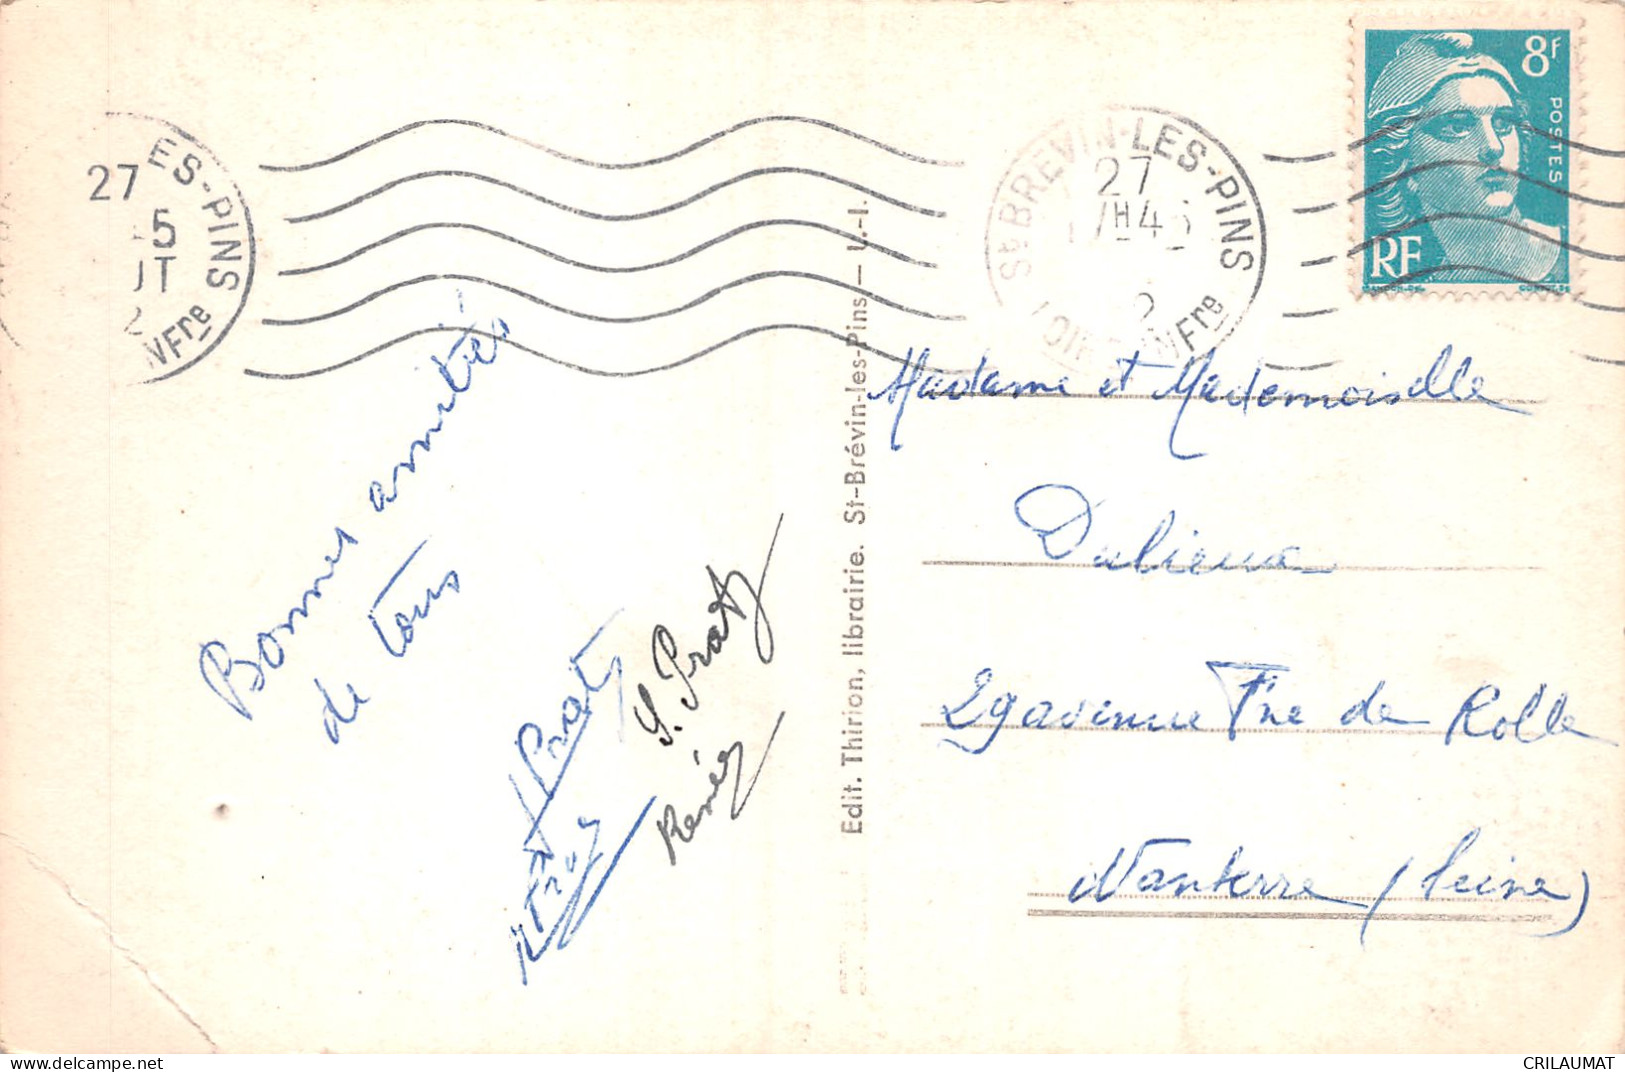 ES-PINS
27
5
UT
2
INFre
St BREVIN-LES-PINS
27
17H45
2
LOIRE INFre
8F
POSTES
RF
Bonnes amitiés
de tous
Prat
S. Pratz
Renée
Edit. Thirion, librairie. St-Brévin-les-Pins — L.-I.
Madame et Mademoiselle
Dulieux
29 avenue Fne de Rolle
Nanterre (Seine)
delcampe.net
CRILAUMAT